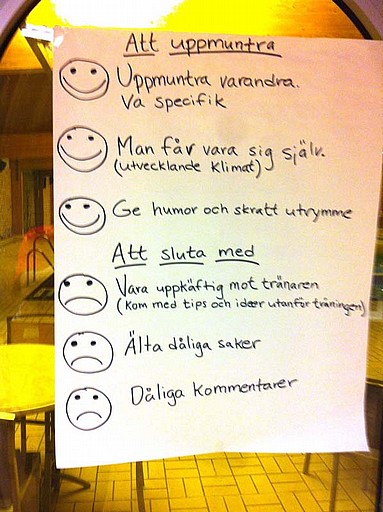 Att uppmuntra
Uppmuntra varandra.
Va specifik
Man får vara sig själv.
(utvecklande klimat)
Ge humor och skratt utrymme
Att sluta med
Vara uppkäftig mot tränaren
(kom med tips och ideer utanför träningen)
Älta dåliga saker
Dåliga kommentarer